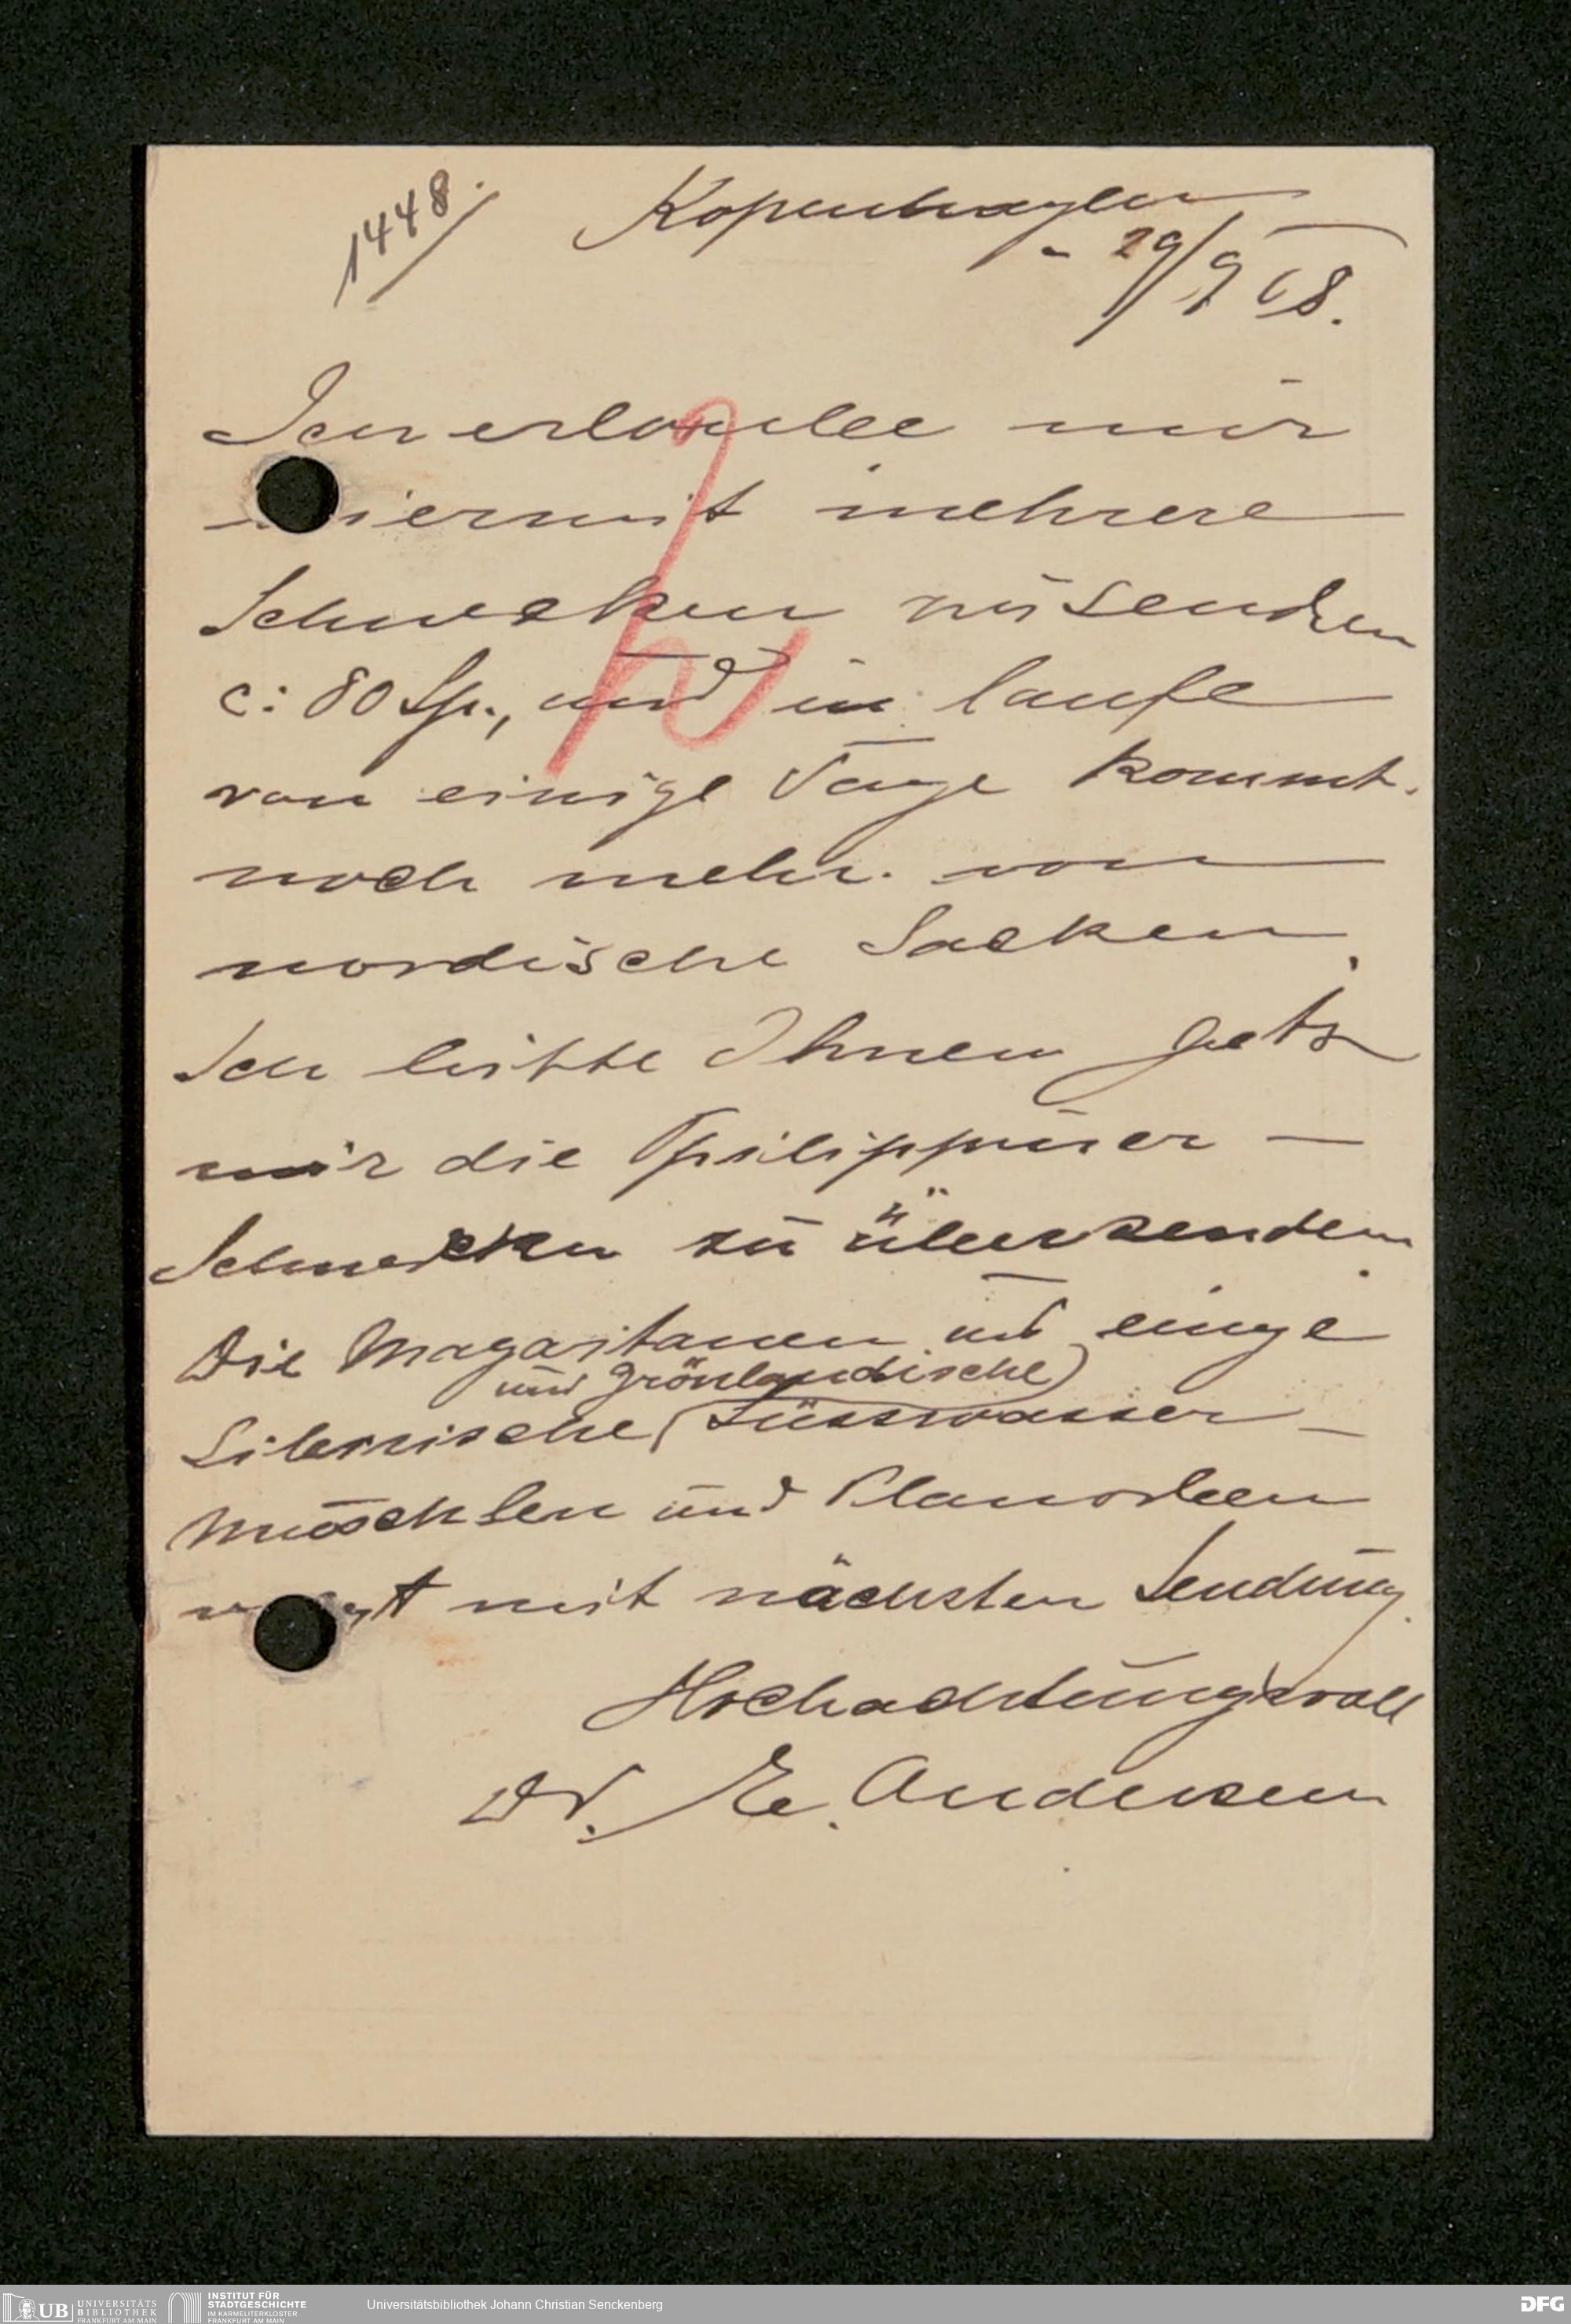 1448.
Kopenhagen
- 29/9 08.
Ich erlaube mir
hiermit mehrere
Schnecken zusenden
c: 80 Sp., und in laufe
von einige Tage kommt.
noch mehr. von
nordische Sacken.
Ich bitte Ihnen jetz
mir die Philippiner -
Schnecken zu übersenden.
Die Magaritanen und einige
und grönlandische)
Sibirische (Süsswasser -
Muschlen und Planorben
mit nächsten Sendung.
Hochachtungsvoll
Dr. E. Andersen
UB UNIVERSITÄTS
BIBLIOTHEK
FRANKFURT AM MAIN
INSTITUT FÜR
STADTGESCHICHTE
IM KARMELITERKLOSTER
FRANKFURT AM MAIN
Universitätsbibliothek Johann Christian Senckenberg
DFG